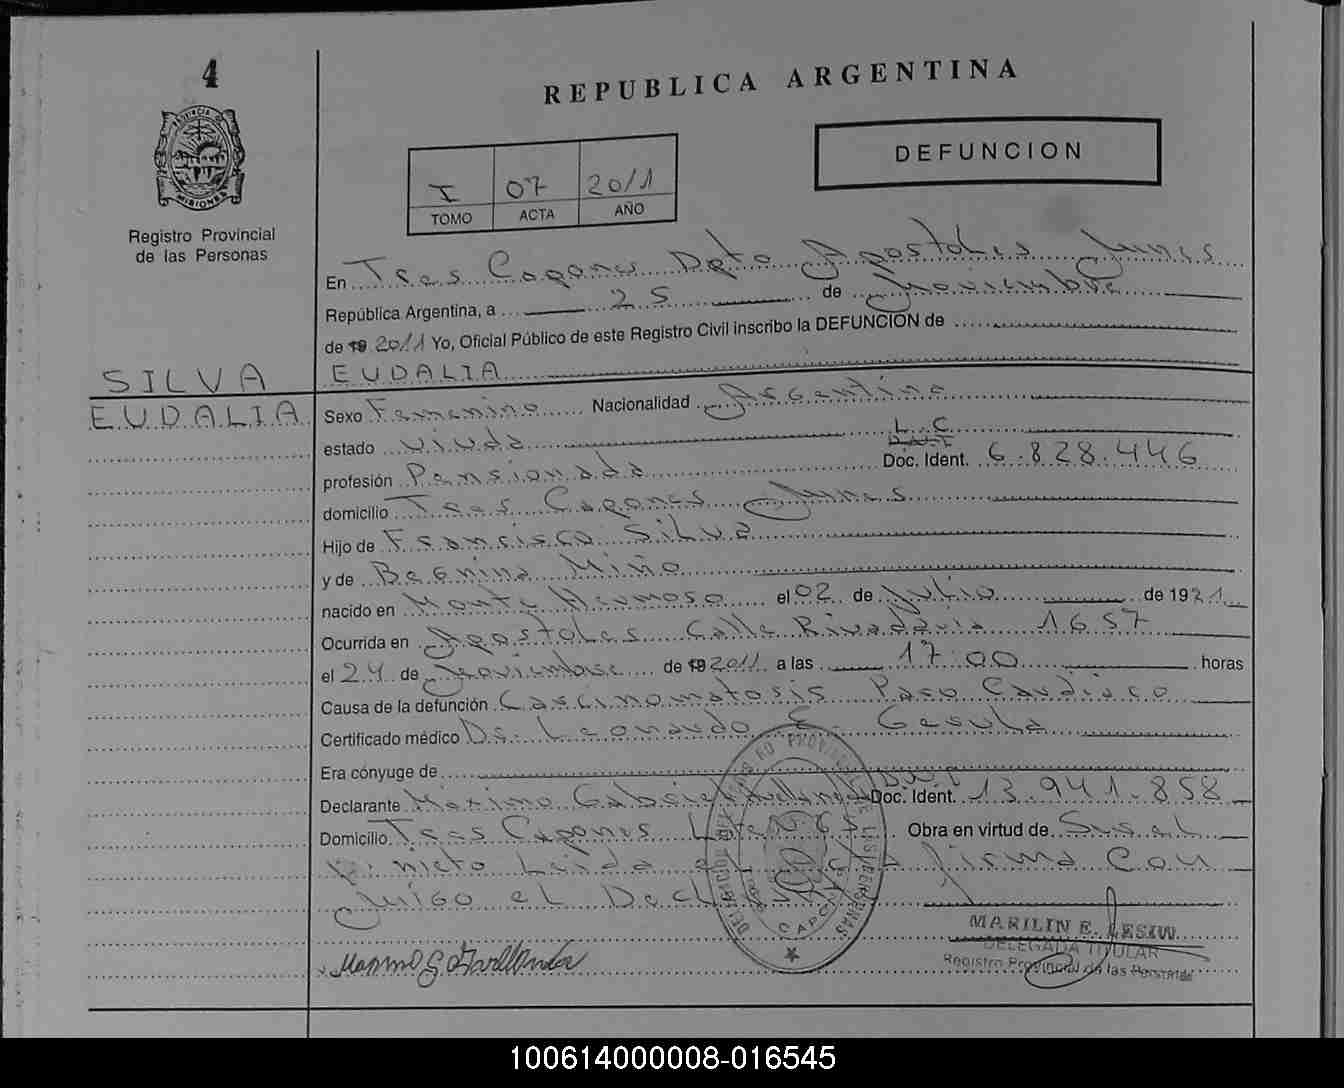 4
REPUBLICA ARGENTINA
PROVINCIA DE
MISIONES
Registro Provincial
de las Personas
DEFUNCION
I 07 2011
TOMO ACTA AÑO
En Tres Capones Dpto Apostoles Mnes
República Argentina, a 25 de Noviembre
de 19 2011 Yo, Oficial Público de este Registro Civil inscribo la DEFUNCION de
SILVA
EUDALIA
EUDALIA
Sexo Femenino Nacionalidad Argentina
estado viuda L.C
D.N.I
profesión Pensionada Doc. Ident. 6.828.446
domicilio Tres Capones Mnes
Hijo de Francisco Silva
y de Begnina Miño
nacido en Monte Hermoso el 02 de Julio de 1921
Ocurrida en Apostoles Calle Rivadavia 1657
el 24 de Noviembre de 19 2011 a las 17:00 horas
Causa de la defunción Carcinomatosis Paro Cardiaco
Certificado médico Dr. Leonardo E. Gesula
Era cónyuge de
D.N.I
Declarante Maximo Gabriel Avellaneda Doc. Ident. 13.941.858
Domicilio Tres Capones Obra en virtud de Su
nieto Leida firma Con
migo el
MARILIN E. LESIW
DELEGADA TITULAR
Registro Provincial de las Personas
100614000008-016545